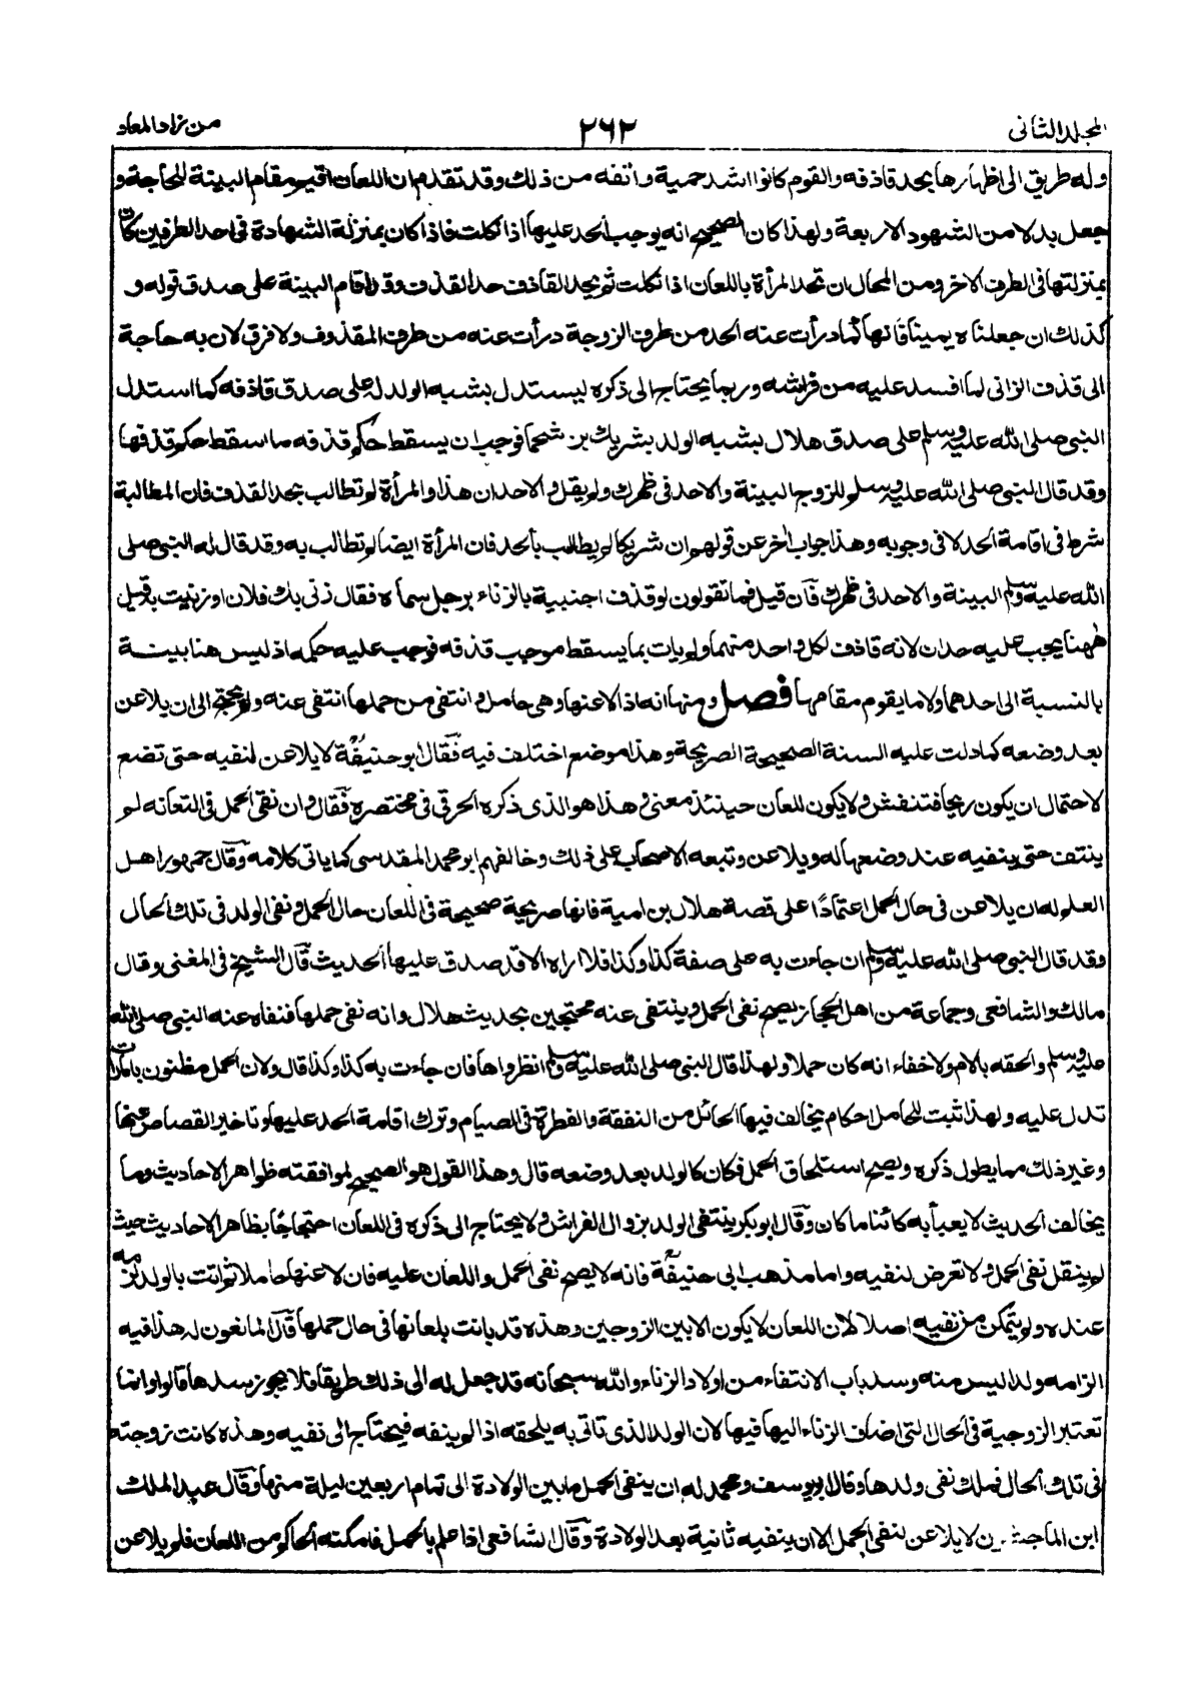 المجلد الثانى
٢٦٢
من زاد المعاد
وله طريق الى اظهارها بحد قاذفه والقوم كانوا اشد حمية وانفه من ذلك وقد تقدم ان اللعان اقيم مقام البينة للحاجة و
جعل بدلا من الشهود الاربعة ولهذا كان الصحيح انه يوجب الحد عليها اذا نكلت فاذا كان بمنزلة الشهادة فى احد الطرفين كان
بمنزلتها فى الطرف الاخر ومن المحال ان تحد المرأة باللعان اذا نكلت ثم يحد القاذف حد القذف وقد اقام البينة على صدق قوله و
كذلك ان جعلناه يمينا فانها كما درأت عنه الحد من طرف الزوجة درأت عنه من طرف المقذوف ولا فرق لان به حاجة
الى قذف الزانى لما افسد عليه من فراشه وربما يحتاج الى ذكره ليستدل بشبه الولد له على صدق قاذفه كما استدل
النبى صلى الله عليه وسلم على صدق هلال بشبه الولد بشريك بن سحما فوجب ان يسقط حكم قذفه ما اسقط حكم قذفها
وقد قال النبى صلى الله عليه وسلم للزوج البينة والاحد فى ظهرك ولم يقل والاحدان هذا والمرأة لم تطالب بحد القذف فان المطالبة
شرط فى اقامة الحد لا فى وجوبه وهذا جواب اخر عن قولهم ان شريكا لم يطالب بالحد فان المرأة ايضا لم تطالب به وقد قال له النبى صلى
الله عليه وسلم البينة والاحد فى ظهرك فان قيل فما تقولون لو قذف اجنبية بالزناء برجل سماه فقال زنى بك فلان او زنيت به قيل
ههنا يجب عليه حدان لانه قاذف لكل واحد منهما ولم يات بما يسقط موجب قذفه فوجب عليه حكمه اذ ليس هنا بينة
بالنسبة الى احدهما ولا ما يقوم مقامها فصل ومنها انه اذا لاعنها وهى حامل وانتفى من حملها انتفى عنه ولم يحتج الى ان يلاعن
بعد وضعه كما دلت عليه السنة الصحيحة الصريحة وهذا موضع اختلف فيه فقال ابو حنيفة لا يلاعن لنفيه حتى تضع
لاحتمال ان يكون ريحا فتنفش ولا يكون للعان حينئذ معنى وهذا هو الذى ذكره الخرقى فى مختصره فقال وان نفى الحمل فى التعانه لم
ينتف حتى ينفيه عند وضعها له ويلاعن وتبعه الاصحاب على ذلك وخالفهم ابو محمد المقدسى كما ياتى كلامه وقال جمهور اهل
العلم له ان يلاعن فى حال الحمل اعتمادًا على قصة هلال بن امية فانها صريحة صحيحة فى اللعان حال الحمل ونفى الولد فى تلك الحال
وقد قال النبى صلى الله عليه وسلم ان جاءت به على صفة كذا وكذا فلا اراه الا قد صدق عليها الحديث قال الشيخ فى المغنى وقال
مالك والشافعى وجماعة من اهل الحجاز يصح نفى الحمل وينتفى عنه محتجين بحديث هلال وانه نفى حملها فنفاه عنه النبى صلى الله
عليه وسلم والحقه بالام ولا خفاء انه كان حملا ولهذا قال النبى صلى الله عليه وسلم انظروها فان جاءت به كذا وكذا قال ولان الحمل مظنون بامارات
تدل عليه ولهذا ثبت للحامل احكام يخالف فيها الحائل من النفقة والفطرة فى الصيام وترك اقامة الحد عليها وتاخير القصاص عنها
وغير ذلك مما يطول ذكره ويصح استلحاق الحمل فكان كالولد بعد وضعه قال وهذا القول هو الصحيح لموافقته ظواهر الاحاديث وما
يخالف الحديث لا يعبأ به كائنا ما كان وقال ابو بكر ينتفى الولد بزوال الفراش ولا يحتاج الى ذكره فى اللعان احتجاجًا بظاهر الاحاديث حيث
لم ينقل نفى الحمل ولا تعرض لنفيه واما مذهب ابى حنيفة فانه لا يصح نفى الحمل واللعان عليه فان لاعنها حاملا ثم اتت بالولد لزمه
عنده ولم يتمكن من نفيه اصلا لان اللعان لا يكون الا بين الزوجين وهذه قد بانت بلعانها فى حال حملها قال المانعون له هذا فيه
الزامه ولدا ليس منه وسد باب الانتفاء من اولاد الزناء والله سبحانه قد جعل له الى ذلك طريقا فلا يجوز سدها قالوا وانما
تعتبر الزوجية فى الحال التى اضاف الزناء اليها فيها لان الولد الذى تاتى به يلحقه اذا لم ينفه فيحتاج الى نفيه وهذه كانت زوجته
فى تلك الحال فملك نفى ولدها وقال ابو يوسف ومحمد له ان ينفى الحمل ما بين الولادة الى تمام اربعين ليلة منها وقال عبد الملك
ابن الماجشون لا يلاعن لنفى الحمل الا ان ينفيه ثانية بعد الولادة وقال الشافعى اذا علم بالحمل فامكنه الحاكم من اللعان فلم يلاعن